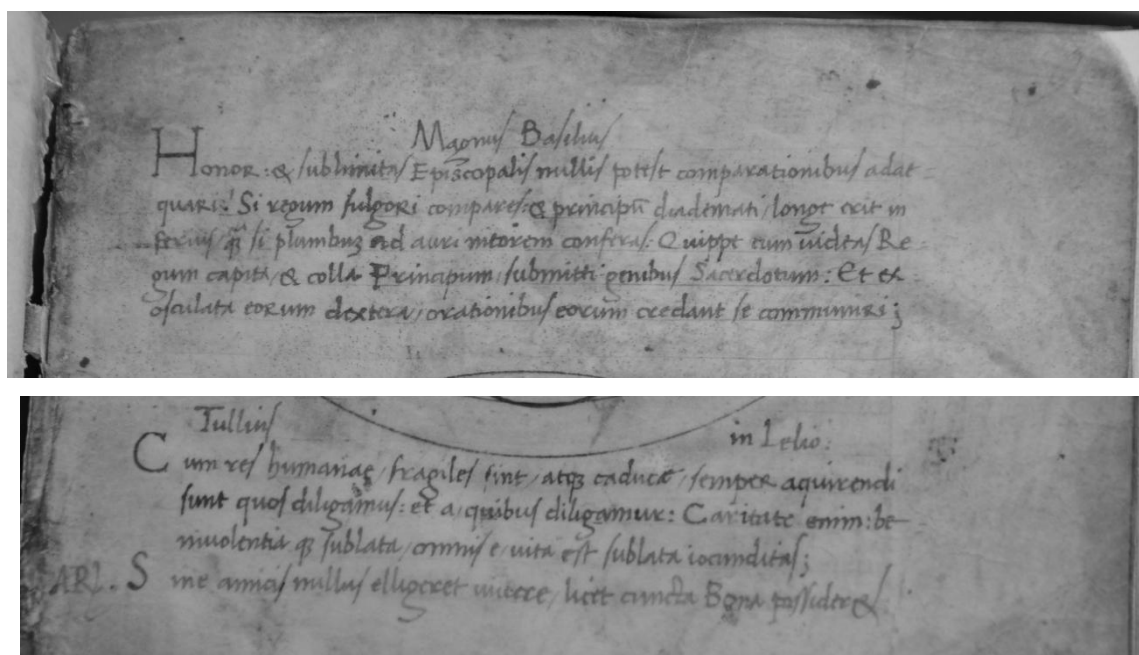 Magnus Basilius
Honor: & sublimitas Episcopalis nullis potest comparationibus adae=
quari: Si regum fulgori compares: & principū diademati, longe erit in
ferius, q̄ si plumbuʒ ad auri nitorem conferas: Quippe cum uideas Re=
gum capita, & colla Principum, submitti genibus Sacerdotum: Et ex=
osculata eorum dextera, orationibus eorum credant se communiri;
Tullius in Lelio:
Cum res humanae, fragiles sint, atqʒ caducae, semper aquirendi
sunt quos diligamus: et a, quibus diligamur: Caritate enim: be-
niuolentia qʒ sublata, omnis e, uita est sublata iocunditas;
ARL. Sine amicis nullus elligeret uiuere, licet cuncta Bona possider&